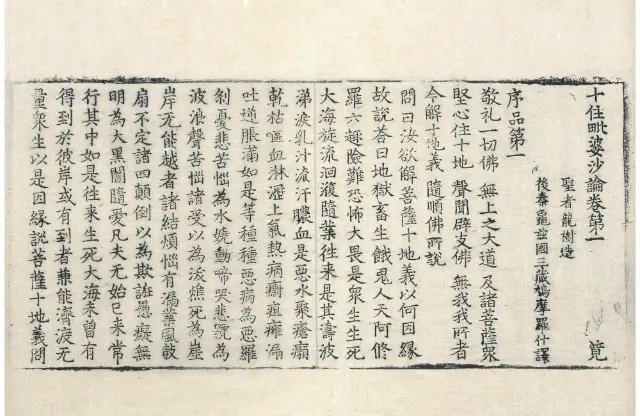 十住毗婆沙論卷第一 竟
聖者龍樹造
後秦龜兹國三藏鳩摩羅什譯
序品第一
敬礼一切佛 無上之大道 及諸菩薩衆
堅心住十地 聲聞辟支佛 無我我所者
今解十地義 隨順佛所說
問曰汝欲解菩薩十地義以何因緣
故說荅曰地獄畜生餓鬼人天阿修
羅六趣險難恐怖大畏是衆生生死
大海旋流洄澓隨業往來是其濤波
涕淚乳汁流汗膿血是惡水聚瘡癩
乾枯嘔血淋瀝上氣熱病瘭疽癰漏
吐逆脹滿如是等種種惡病為惡羅
剎憂悲苦惱為水嬈動啼哭悲號為
波浪聲苦惱諸受以為沃燋死為崖
岸無能越者諸結煩惱有漏業風鼓
扇不定諸四顛倒以為欺誑愚癡無
明為大黑闇隨愛凡夫無始已來常
行其中如是往來生死大海未曾有
得到於彼岸或有到者兼能濟渡无
量衆生以是因緣說菩薩十地義問